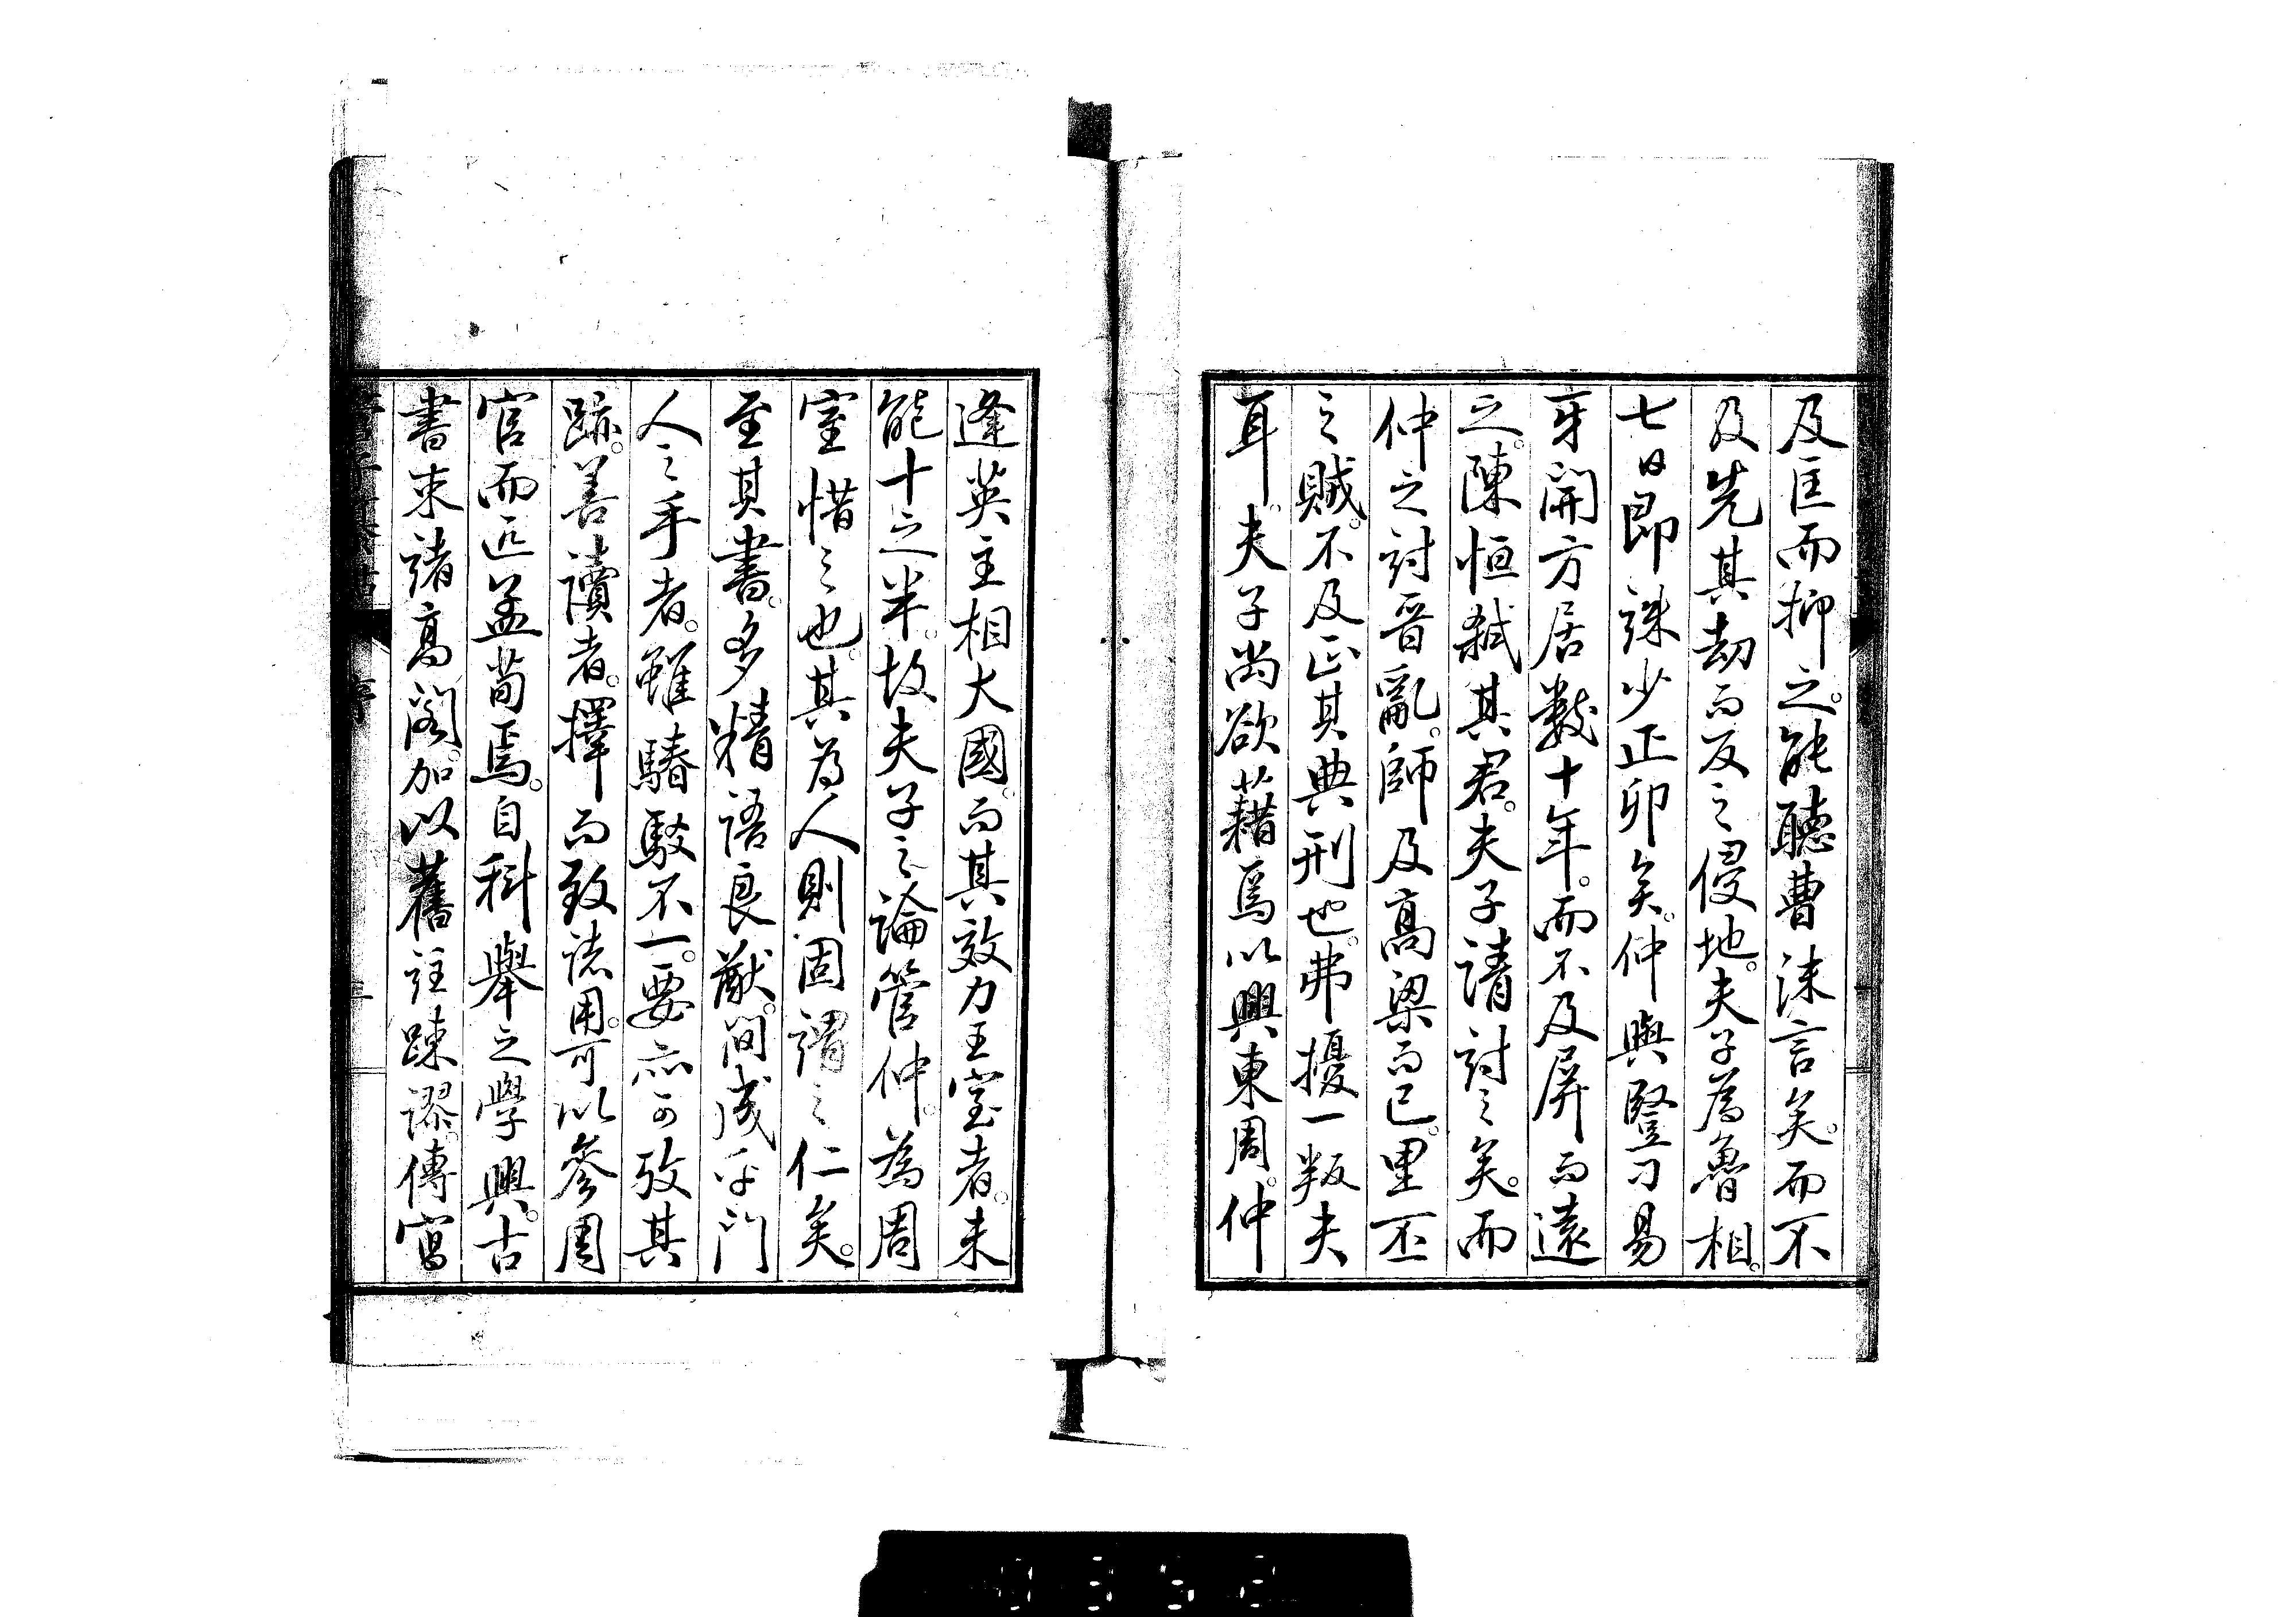 及匡而抑之。能聽曹沫言矣。而不
及先其劫而反之侵地。夫子為魯相。
七日即誅少正卯矣。仲與豎刁易
牙開方居數十年。而不及屏而遠
之。陳恒弒其君。夫子請討之矣。而
仲之討晉亂。師及高梁而已。里丕
之賊。不及正其典刑也。弗擾一叛夫
耳。夫子尚欲藉焉以興東周。仲
逢英主相大國。而其效力王室者。未
能十之半。故夫子之論管仲。為周
室惜之也。其為人則固謂之仁矣。
至其書。多精語良猷。間成乎門
人之手者。雖駳駁不一。要亦可攷其
跡。善讀者。擇而致諸用。可以參周
官而近孟荀焉。自科舉之學興。古
書束諸高閣。加以舊註疎謬。傳寫